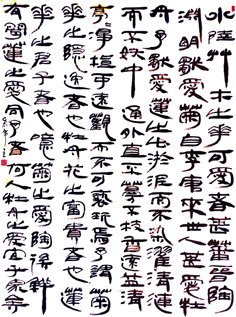 水陸草木之華可愛者甚蕃晉陶
淵明獨愛菊自李唐來世人甚愛牡
丹予獨愛蓮之出於泥而不染濯清漣
而不妖中通外直不蔓不枝香遠益清
亭亭淨植可遠觀而不可褻玩焉予謂菊
華之隱逸者也牡丹花之富貴者也蓮
華之君子者也噫菊之愛陶後鮮
有聞蓮之愛同予者何人牡丹之愛宜乎眾矣